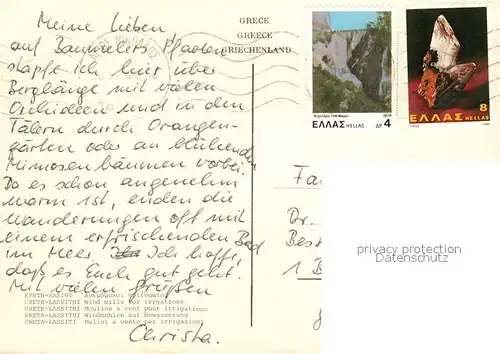 Meine Lieben
auf Baumelers Pfaden
stapfe ich hier über
Berghänge mit vielen
Orchideen und in den
Tälern durch Orangen-
gärten oder an blühenden
Mimosenbäumen vorbei.
Da es schon angenehm
warm ist, enden die
Wanderungen oft mit
einem erfrischenden Bad
im Meer. Ich hoffe,
daß es Euch gut geht.
Mit vielen Grüßen
Christa.
ΚΡΗΤΗ-ΛΑΣΙΘΙ Ανεμόμυλοι ποτίσματος
CRETE-LASSITHI Wind mills for irrgations
CRETE-LASSITHI Moulins a vent pour irrigations
KRETA-LASSITHI Windmohlen zur Bewasserung
CRETA-LASSITI Mulini a vento per irrigazioni
GRECE
GREECE
GRIECHENLAND
1979
ΕΛΛΑΣ HELLAS ΔΡ 4
8
ΕΛΛΑΣ
HELLAS
Fa
Dr.
Bes
1 B
privacy protection
Datenschutz